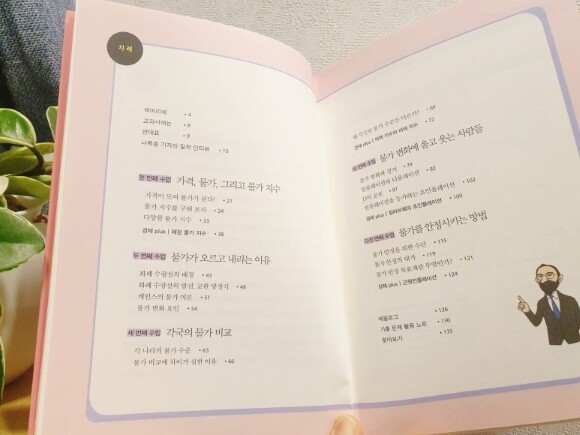 차례
책머리에 • 4
교과서에는 • 8
연대표 • 9
나특종 기자의 밀착 인터뷰 • 10
첫 번째 수업 가격, 물가, 그리고 물가 지수
가격이 모여 물가가 된다! • 21
물가 지수를 구해 보자 • 24
다양한 물가 지수 • 33
경제 plus | 체감 물가 지수 • 38
두 번째 수업 물가가 오르고 내리는 이유
화폐 수량설의 배경 • 45
화폐 수량설의 발전, 교환 방정식 • 48
케인스의 물가 이론 • 51
물가 변화 요인 • 54
세 번째 수업 각국의 물가 비교
각 나라의 물가 수준 • 63
물가 비교에 차이가 실린 이유 • 66
왜 각국의 물가 수준은 다른가? • 69
경제 plus | 빅맥 지수와 라떼 지수 • 72
네 번째 수업 물가 변화에 울고 웃는 사람들
물가 변화와 경기 • 79
인플레이션과 디플레이션 • 82
• 97
인플레이션을 능가하는 초인플레이션 • 102
경제 plus | 짐바브웨의 초인플레이션 • 109
다섯 번째 수업 물가를 안정시키는 방법
물가 안정을 위한 수단 • 115
물가 안정의 대가 • 119
물가 안정 목표제란 무엇인가? • 121
경제 plus | 근원인플레이션 • 124
에필로그 • 126
기출 문제 활용 노트 • 130
찾아보기 • 135